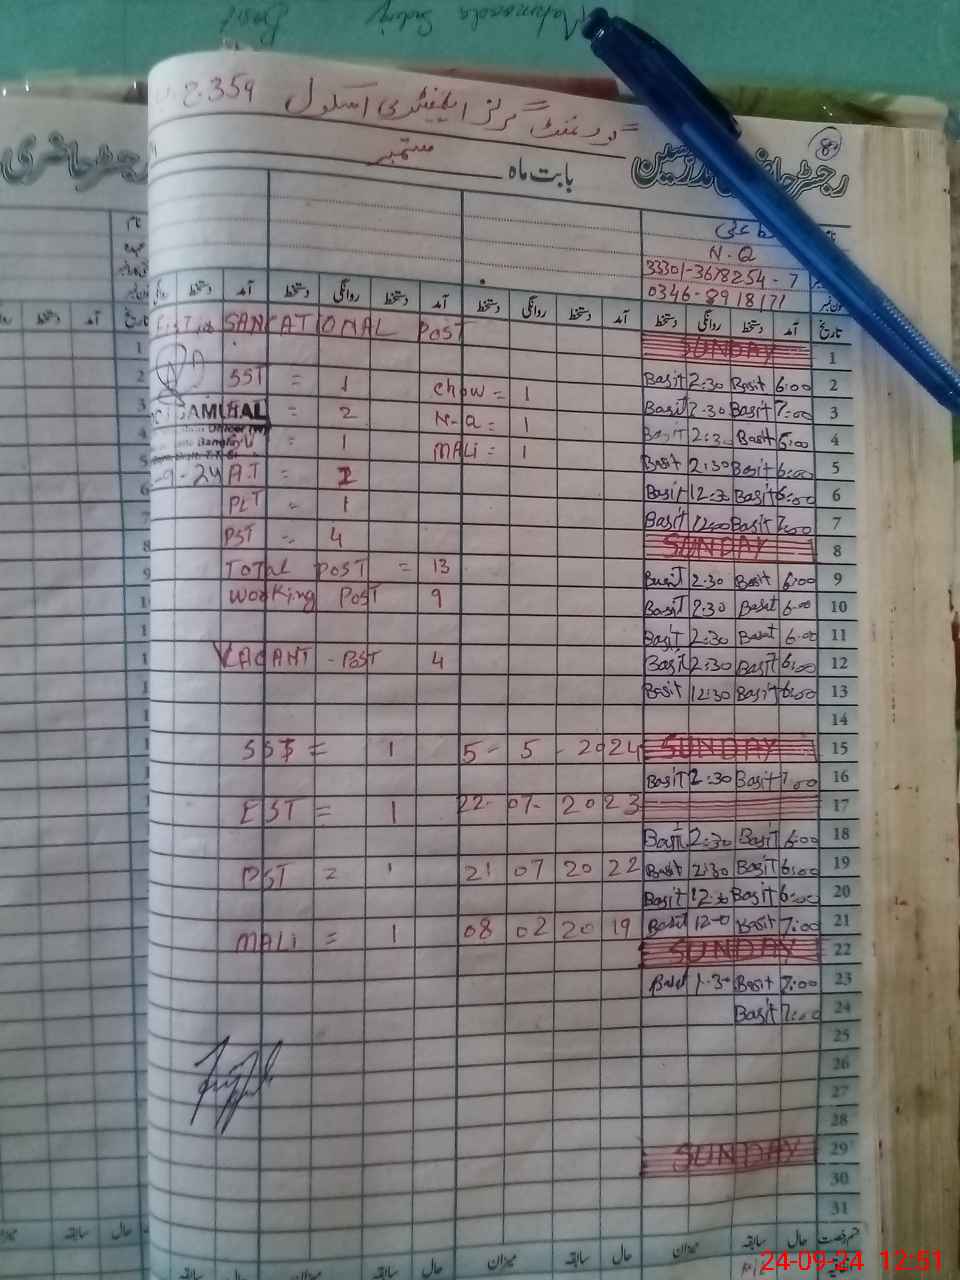 359 گورنمنٹ گرلز ایلیمنٹری اسکول
رجسٹر حاضری
بابت ماہ ستمبر
8
N-Q
33301-3678254-7
0346-8918171
تاریخ آمد دستخط روانگی دستخط آمد دستخط روانگی دستخط آمد دستخط روانگی دستخط آمد
SANCATIONAL POST
1 SUNDAY
2 Basit 6:00 Basit 2:30
3 Basit 7:00 Basit 2:30
4 Basit 6:00 Basit 2:30
5 Basit 6:00 Basit 2:30
6 Basit 6:00 Basit 12:30
7 Basit 7:00 Basit 12:00
8 SUNDAY
9 Basit 6:00 Basit 2:30
10 Basit 6:00 Basit 2:30
11 Basit 6:00 Basit 2:30
12 Basit 6:00 Basit 2:30
13 Basit 6:00 Basit 12:30
14
15 SUNDAY
16 Basit 7:00 Basit 2:30
17
18 Basit 6:00 Basit 2:30
19 Basit 6:00 Basit 2:30
20 Basit 6:00 Basit 12:30
21 Basit 7:00 Basit 12:0
22 SUNDAY
23 Basit 7:00 Basit 1:30
24 Basit 7:00
25
26
27
28
29 SUNDAY
30
31
SST = 1
= 2
= 1
A.T = 1
PET = 1
PST = 4
Chow = 1
N-Q = 1
MALi = 1
Total post = 13
Working Post 9
VACANT - Post 4
SST = 1 5-5-2024
EST = 1 22-07-2023
PST = 1 21 07 2022
MALi = 1 08 02 2019
میزان سابقہ حال میزان سابقہ حال میزان سابقہ حال
24-09-24 12:51